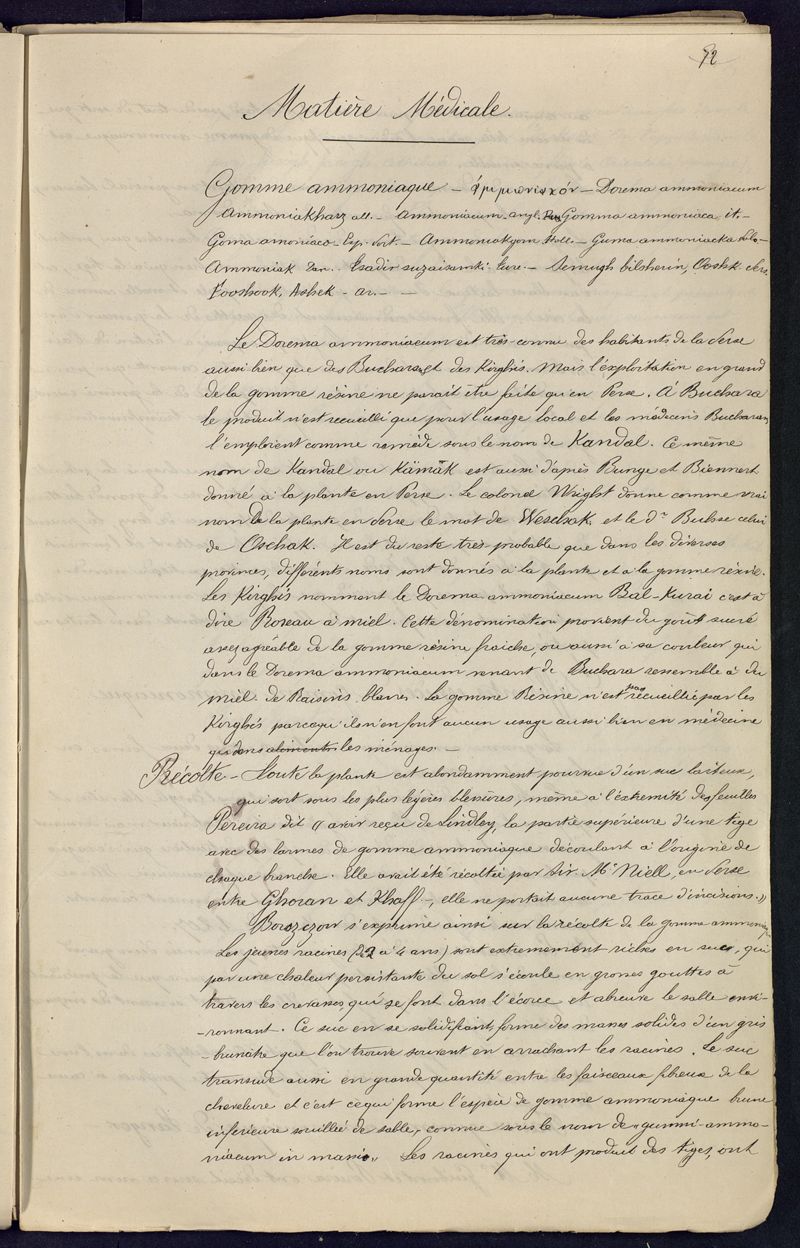 52
Matière Médicale.
Gomme ammoniaque – Dorema ammoniacum
Ammoniakharz all. – Ammoniacum angl. Gomma ammoniaca it. –
Goma amoniaco Esp. Port. – Ammoniakgom Holl. – Guma ammoniacka
Ammoniak Dan. – Tsadir suzaisamki – Semugh bilsherin, Ooshk
Fooshook, Ashek – ar. – –
Le Dorema ammoniacum est très connu des habitants de la Perse
aussi bien que des Buchares et des Kirghis. Mais l'exploitation en grand
de la gomme résine ne parait être faite qu'en Perse. A Buchara
le produit n'est recueilli que pour l'usage local et les médecins Bucharans
l'emploient comme remède sous le nom de Kandal. Ce même
nom de Kandal ou Kämäk est aussi d'après Bunge et Biennert
donné à la plante en Perse. Le colonel Wright donne comme vrai
nom de la plante en Perse le mot de Weschak et le dr Buhse celui
de Oschak. Il est du reste très probable que dans les diverses
provinces, différents noms sont donnés à la plante et à la gomme résine.
Les Kirghis nomment le Dorema ammoniacum Bal-Kurai c'est à
dire Roseau à miel. Cette dénomination provient du goût sucré
assez agréable de la gomme résine fraiche, ou aussi à sa couleur qui
dans le Dorema ammoniacum venant de Buchara ressemble à du
miel de Raisins blancs. La gomme Résine n'est pas recueillie par les
Kirghis parcequ'ils n'en font aucun usage aussi bien en médecine
que dans les ménages. –
Récolte – Toute la plante est abondamment pourvue d'un suc laiteux,
qui sort sous les plus légères blessures, même à l'extrémité des feuilles
Pereira dit « avoir reçu de Lindley, la partie supérieure d'une tige
avec des larmes de gomme ammoniaque découlant à l'origine de
chaque branche. Elle avait été récoltée par Sir Mc Niell, en Perse
entre Ghorian et Khaff –, elle ne portait aucune trace d'incisions. »
Borszczow s'exprime ainsi sur la récolte de la gomme ammoniaque
Les jeunes racines (2 à 4 ans) sont extrêmement riches en suc, qui
par une chaleur persistante du sol s'écoule en grosses gouttes à
travers les crevasses, qui se font dans l'écorce et abreuve le sable envi-
-ronnant. Ce suc en se solidifiant, forme des masses solides d'un gris
-brunâtre que l'on trouve souvent en arrachant les racines. Le suc
transude aussi en grande quantité entre les faisceaux fibreux de la
chevelure et c'est ce qui forme l'espèce de gomme ammoniaque brune
inférieure souillée de sable, connue sous le nom de « gummi-ammo-
niacum in massis ». Les racines qui ont produit des tiges, ont